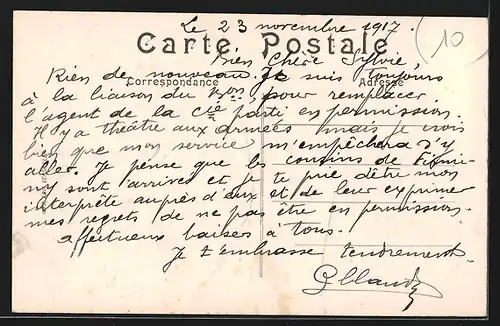 Le 23 novembre 1917.
10
Carte Postale
Bien Chère Sylvie,
Correspondance
Adresse
Rien de nouveau. Je suis toujours
à la liaison du pour remplacer
l'agent de la Cie parti en permission.
Il y a théâtre aux armées mais je crois
bien que mon service m'empêchera d'y
aller. Je pense que les cousins de
sont arrivés et je te prie d'être mon
interprète auprès d'eux et de leur exprimer
mes regrets de ne pas être en permission.
affectueux baisers à tous.
Je t'embrasse tendrement.